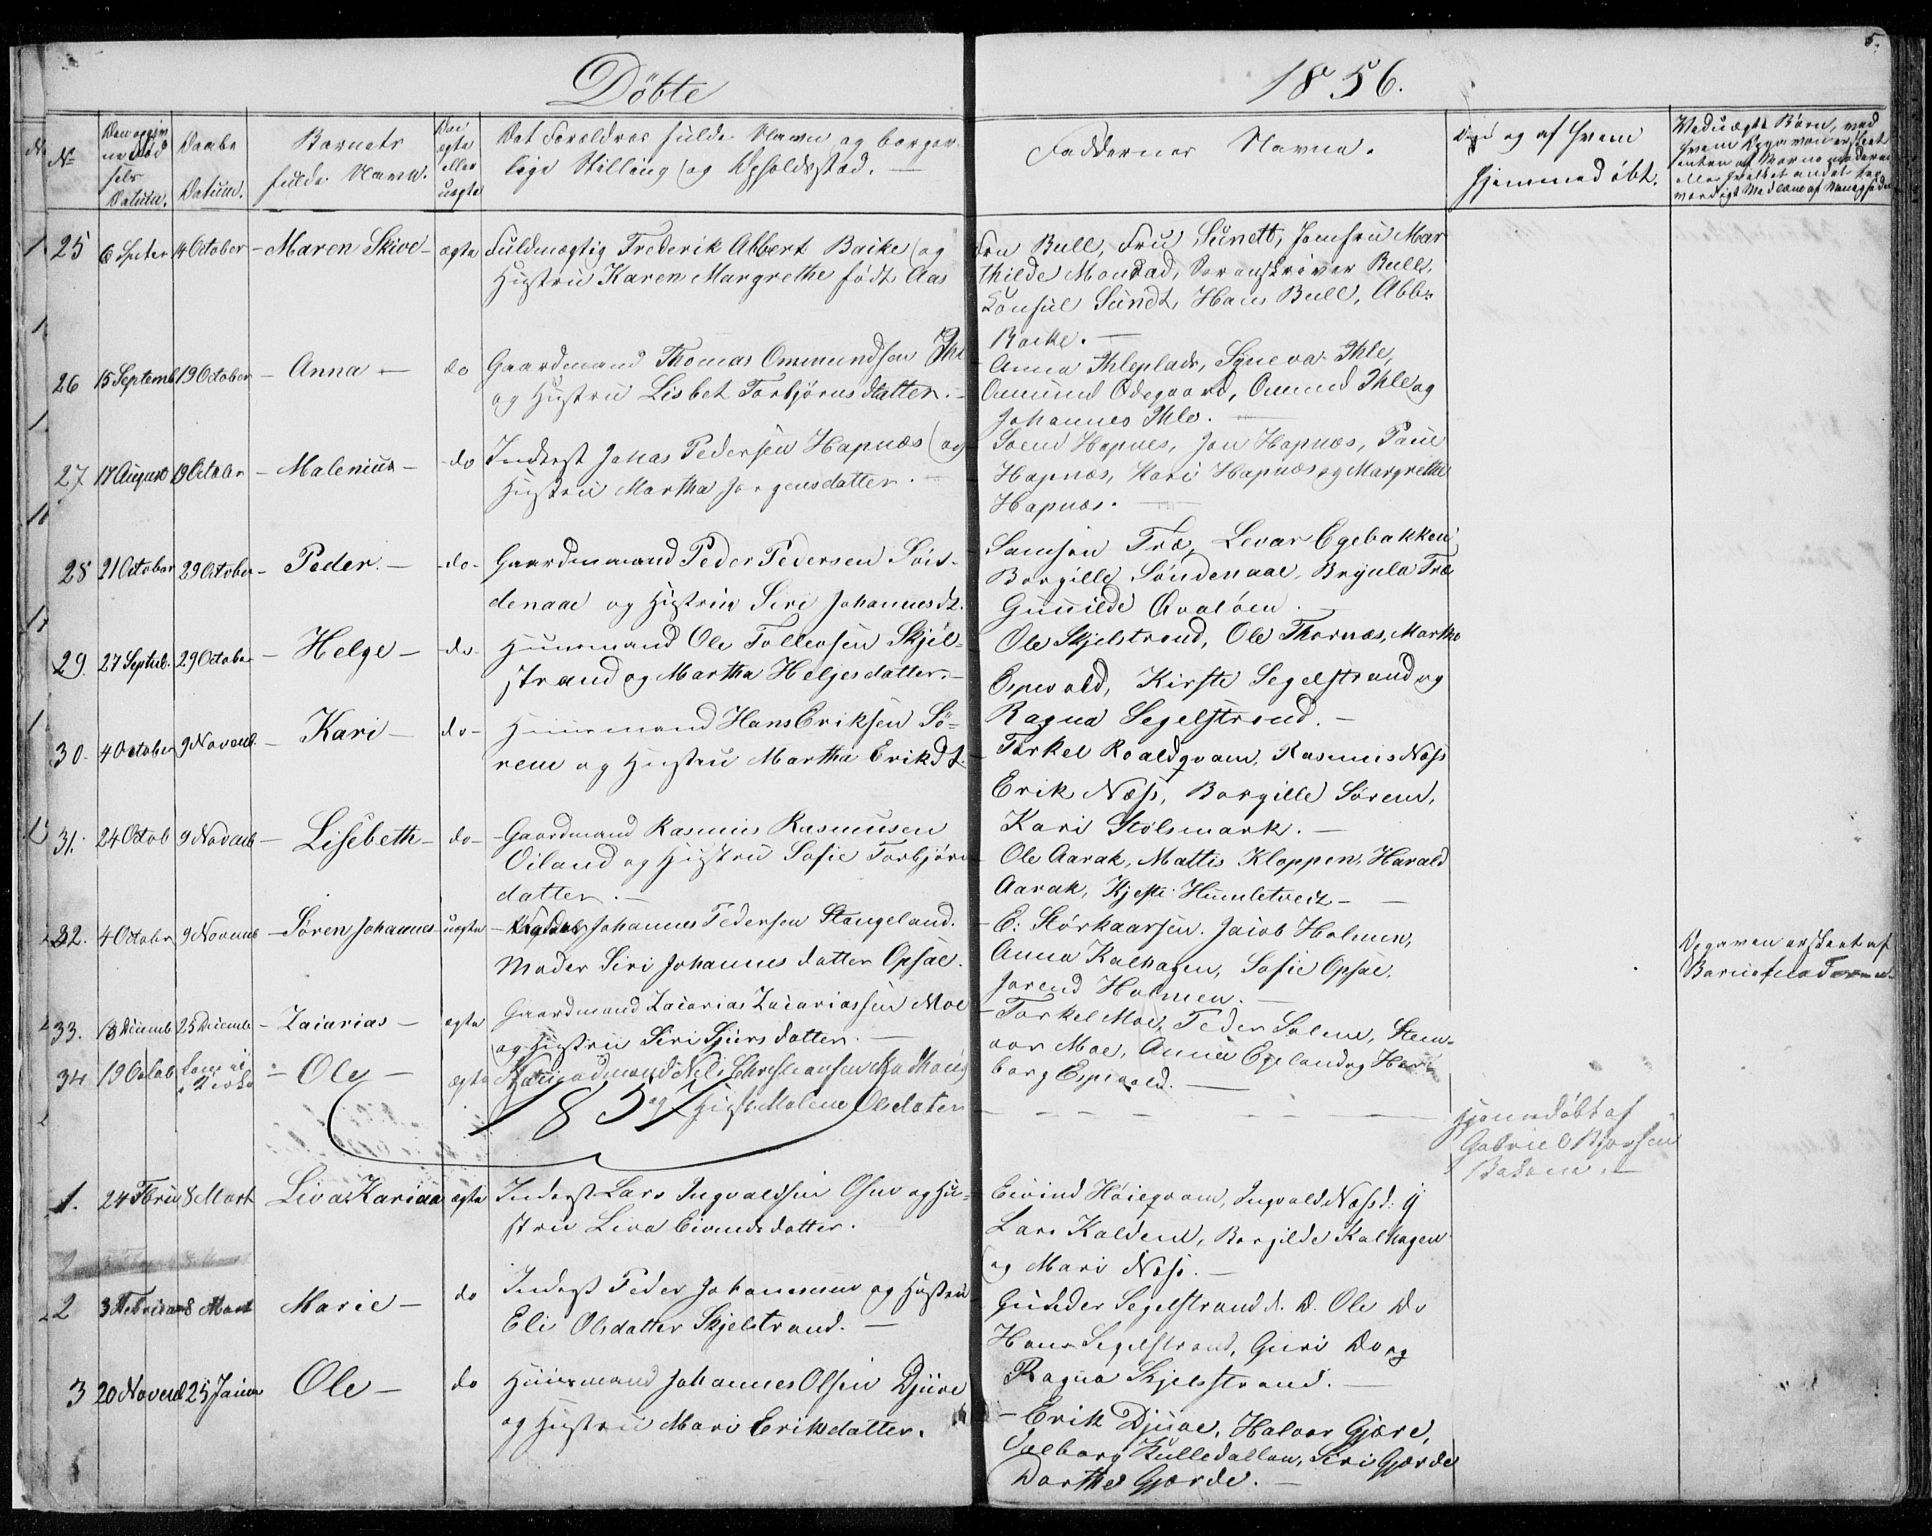 Döbte
1856.
5.
No
Datum.
Daabs
Datum.
Barnets
fulde Navn.
ægte
eller
uægte
Det Forældres fulde Navn og borger-
lige Stilling og Opholdsstad. —
Faddernes Navne.
og af hvem
hjemmedöbt.
25 6 Spthr 14 October - Maren Skive - ægte Fuldmægtig Frederik Abbert Baike og
Hustru Karen Margrethe födt Aas
Fru Bull, Fru Sundt, Jomfru Mar
thilde Monrad, Sorenskriver Bull,
Konsul Sundt, Hans Bull, Abb.
Baike. —
26 15 Septemb 19 October - Anna - do Gaardmand Thomas Ommundsen Ihle
og Hustru Lisbet Torbjörnsdatter. -
Anna Ihleplads, Syneva Ihle,
Omund Ödegaard, Omund Ihle og
Johannes Ihle. —
27. 17 August 19 October - Malenius - do Inderst Johas Pedersen Hapnæs og
Hustru Martha Jörgensdatter. -
Svend Hapnes, Jon Hapnæs, Paul
Hapnæs, Kari Hapnæs og Margrethe
Hapnæs. —
28 21 October 29 October - Peder. - do - Gaardmand Peder Pedersen Sön-
denaae og Hustru Siri Johannesdt.
Samson Træ, Levar Egebakken
Borgille Söndenaae, Brynla Træ
Gunilde Qvalöen. -
29. 27 Septbr. 29 October - Helge - do - Huusmand Ole Tollevsen Skjel-
strand og Martha Helgesdatter. -
Ole Skjelstrand, Ole Thornæs, Martha
Espevold, Kirsti Segelstrand og
Ragna Segelstrand. -
30. 4 October 9 Novemb. - Kari - do - Huusmand Hans Eriksen Sö-
rene og Hustru Martha Erikdt.
Torkel Roaldqvam, Rasmus Næss
Erik Næss, Borgille Sörene,
Kari Stölsmark. —
31. 24 Octob 9 Novemb - Lisebeth - do - Gaardmand Rasmus Rasmusen
Öiland og Hustru Sofie Torbjörn
datter. —
Ole Aarak, Mattis Kloppen, Harald
Aarak, Kjesti Humletveit - -
32. 4 October 9 Novemb - Sören Johannes - uægte - Johannes Pedersen Stangeland.
Moder Siri Johannesdatter Opsal.
E: Störkaarsen. Jacob Holmen,
Anna Kalhagen, Sofie Opsal,
Jorend Holmen. —
Opgaven er skeet af
33. 18 Decemb 25 Decemb - Zacarias - ægte Gaardmand Zacarias Zacariassen Moe
og Hustru Siri Sjursdatter. —
Torkel Moe, Peder Solem, Sten-
aar Moe, Anna Egeland og Her-
borg Espevold. —
34. 19 Octob - Ole - ægte Gaardmand Nils Christiansen
og Hust. Malene Olsdater
Hjemmedöbt af
Gabriel
1857
1. 24 Febru 8 Mart Liva Karina ægte Inderst Lars Ingvaldsen Osen og Hu-
stru Liva Eivindsdatter.
Eivind Höieqvam, Ingvald Næss d: y
Lars Kalden, Borgilde Kalhagen
og Mari Næss. —
2 3 Februar 8 Mart Marie - do Inderst Peder Johannesen og Hustru
Eli Olsdatter Skjelstrand. —
Gunder Segelstrand d. D. Ole Do
Hans Segelstrand, Guri Do og
Ragna Skjelstrand. —
3 20 Novemb 25 Januar Ole - do Huusmand Johannes Olsen Djuve
og Hustru Mari Eriksdatter.
- Erik Djuve, Halvor Gjære,
Valborg Kulledallen, Siri Gjærde
Dorthe Gjærde. —